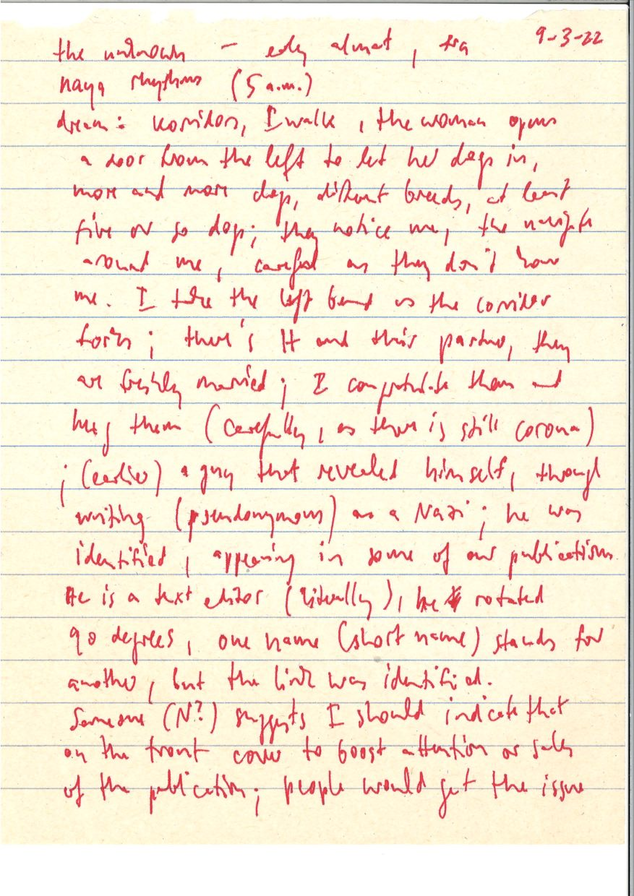 9-3-22
the unknown – early almost,
naya rhythms (5 a.m.)
dream: corridor, I walk, the woman opens
a door from the left to let her dogs in,
more and more dogs, different breeds, at least
five or so dogs; they notice me, the navigate
around me, careful as they don't know
me. I take the left bend as the corridor
forks; there's H and this partner, they
are freshly married; I congratulate them and
hug them (carefully, as there is still corona)
; (earlier) a guy that revealed himself, through
writing (pseudonymous) as a Nazi; he was
identified, appearing in some of our publications
He is a text editor (literally), he rotated
90 degrees, one name (short name) stands for
another, but the link was identified.
Someone (N?) suggests I should indicate that
on the front cover to boost attention or sales
of the publication; people would get the issue